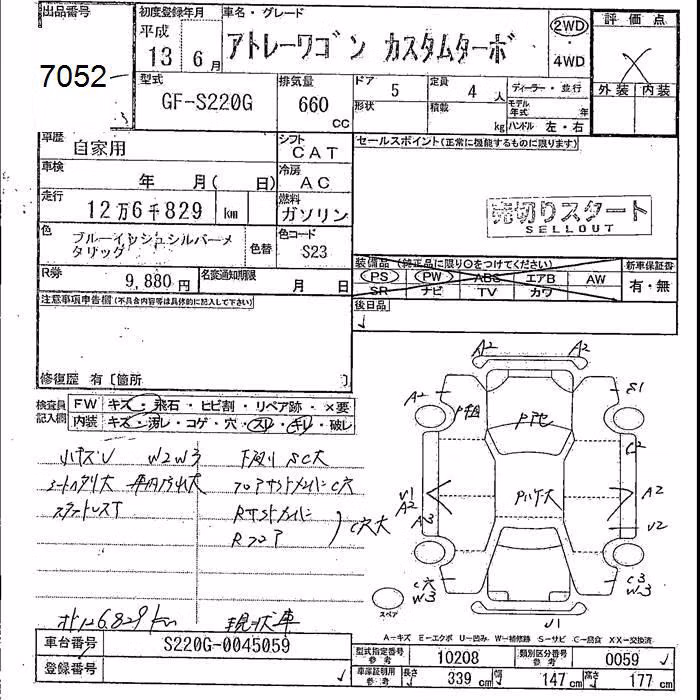 出品番号
7052
初度登録年月
平成
13 6月
車名・グレード
アトレーワゴン カスタムターボ
2WD
4WD
評価点
X
外装 内装
型式
GF-S220G
排気量
660
CC
ドア 5
形状
定員 4 人
積載 kg
ディーラー・並行
モデル年式 年
ハンドル 左・右
車歴
自家用
シフト
CAT
車検
年 月( 日)
冷房
AC
走行
12万6千829 km
燃料
ガソリン
色
ブルーイッシュシルバーメタリック
色替
色コード
S23
R券
9,880円
名変通知期限
月 日
セールスポイント(正常に機能するものに限ります)
売切りスタート
SELLOUT
装備品(純正品に限り○をつけてください)
PS PW ABS エアB AW
SR ナビ TV カワ
新車保証書
有・無
後日品
注意事項申告欄(不具合内容等は具体的に記入して下さい)
修復歴 有〔箇所 〕
検査員記入欄
FW キズ・飛石・ヒビ割・リペア跡・×要
内装 キズ・汚レ・コゲ・穴・スレ・キレ・破レ
小キズU W2W3
下廻りSC大
フロアサイドメンバーC穴
Rサイドメンバー
Rフロア
C穴大
オドメーター126.829km 現状車
A2 A2
A2 S1
C2
U1 A2
A2
A3 U2
C穴 W3
C3 W3
U1
スペア
A-キズ E-エクボ U-凹み W-補修跡 S-サビ C-腐食 XX-交換済
車台番号 S220G-0045059
登録番号
型式指定番号 参考 10208 類別区分番号 参考 0059
車庫証明用 参考 長さ 339 cm 幅 147 cm 高さ 177 cm